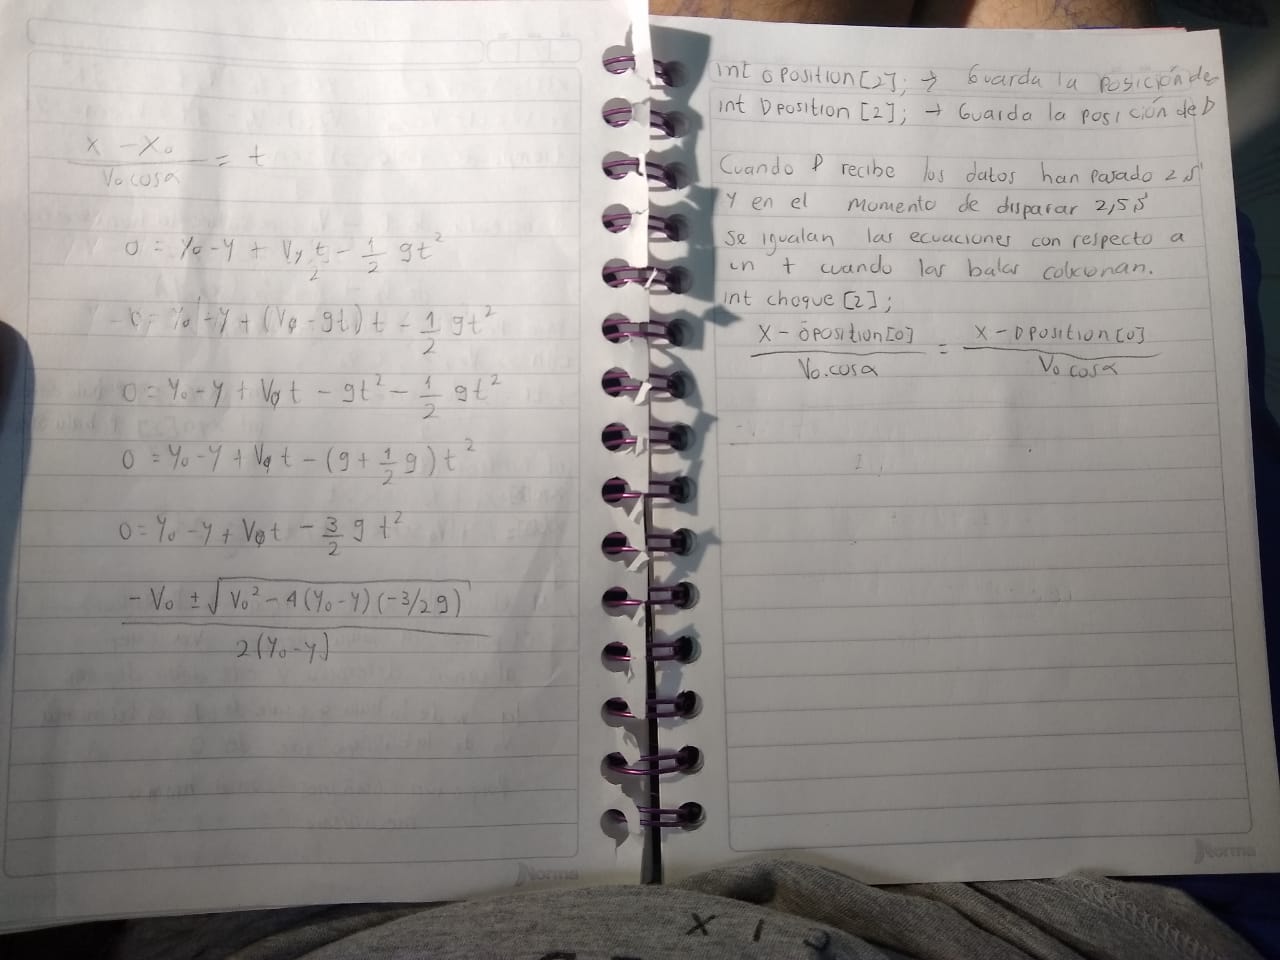 x - x₀ / V₀ cosα = t
0 = y₀ - y + Vy t - 1/2 gt²
0 = y₀ - y + (V₀ - gt) t - 1/2 gt²
0 = y₀ - y + V₀t - gt² - 1/2 gt²
0 = y₀ - y + V₀t - (g + 1/2 g) t²
0 = y₀ - y + V₀t - 3/2 g t²
-V₀ ± √V₀² - 4(y₀-y)(-3/2 g) / 2(y₀-y)
Norma
int OPosition[2]; → Guarda la posición de
int DPosition [2]; → Guarda la posición de D
Cuando P recibe los datos han pasado 2 s
y en el momento de disparar 2,5 s
se igualan las ecuaciones con respecto a
un t cuando las balas colicionan.
int choque [2];
X - OPosition[0] / V₀.cosα = X - DPosition[0] / V₀ cosα
Norma
X I